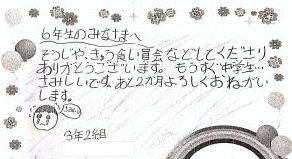 6年生のみなさまへ
そうじや、きゅう食い員会などしてくださり
ありがとうございます。もうすぐ中学生…
さみしいです。あと2か月よろしくおねがい
します。
3年2組